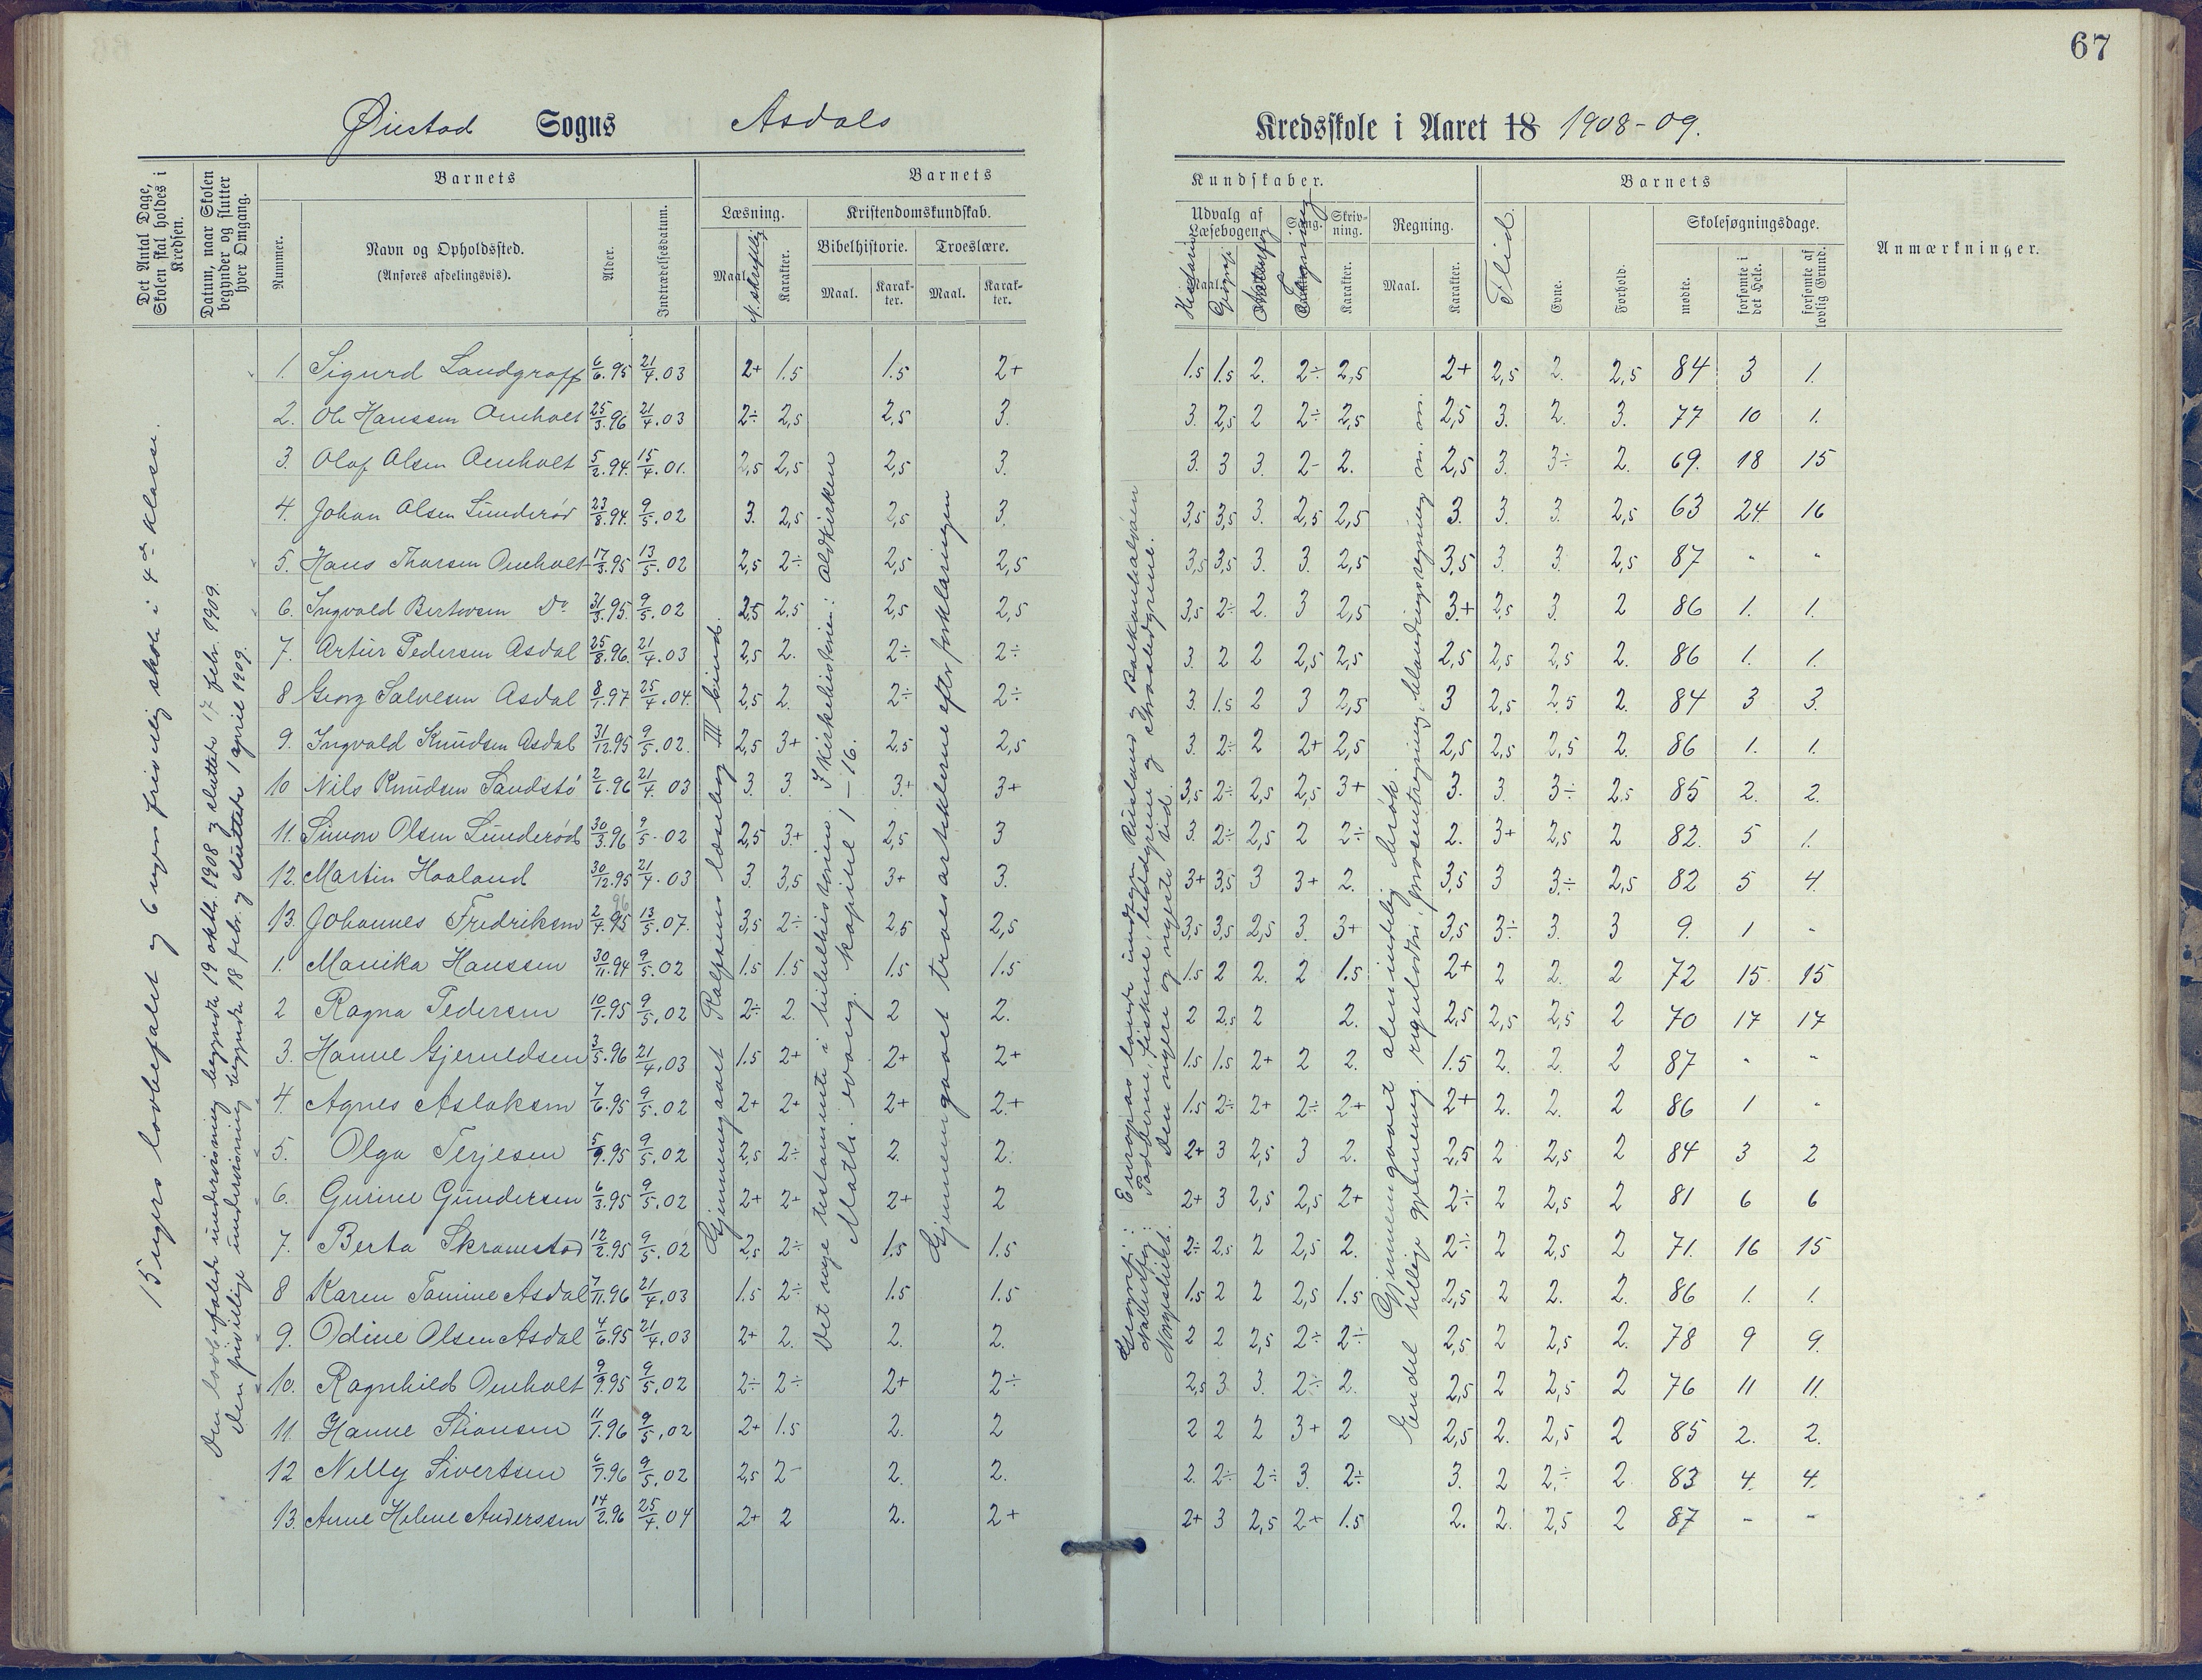 67
Øiestad Sogns Asdals Kredsskole i Aaret 18 1908-09.
Det Antal Dage, Skolen skal holdes i Kredsen.
Datum, naar Skolen begynder og slutter hver Omgang.
Barnets
Nummer.
Navn og Opholdssted.
(Anføres afdelingsvis).
Alder.
Indtrædelsesdatum.
Barnets
Læsning.
Maal.
N. skriftlig
Karakter.
Kristendomskundskab.
Bibelhistorie.
Maal.
Karakter.
Troeslære.
Maal.
Karakter.
Kundskaber.
Udvalg af Læsebogen
Maal.
Historie
Geografi
Naturfag
Sang.
Skrivning.
Karakter.
Regning.
Maal.
Karakter.
Barnets
Flid.
Evne.
Forhold.
Skolesøgningsdage.
mødte.
forsømte i det Hele.
forsømte af lovlig Grund.
Anmærkninger.
15 ugers lovbefalet og 6 ugers frivillig skole i 4de klasse.
Den lovbefalede undervisning begyndte 19 oktbr. 1908 og sluttede 17 febr. 1909.
Den frivillige undervisning begyndte 18 febr. og sluttede 1 april 1909.
Gjennemgaaet Rolfsens læsebog III bind.
Det nye testamente i bibelhistorien. I kirkehistorien: Oldkirken
Math. evang. kapitel 1-16.
Gjennemgaaet troesartiklerne efter forklaringen
Geografi: Europas lande undtagen Rusland og Balkanhalvøen
Naturfag: Padderne, fiskene, leddyrene og straaledyrene.
Norgeshist. Den nyere og nyeste tid.
Gjennemgaaet almindelig brøk.
Endel tillige gjennemg. reguladetri, procentregning, blandingsregning m. m.
1. Sigurd Landgraff 6/6.95 21/4.03 2+ 1.5 1.5 2+ 1.5 1.5 2. 2÷ 2,5 2+ 2,5 2. 2,5 84 3 1.
2. Ole Hanssen Omholt 25/3.96 21/4.03 2÷ 2,5 2,5 3. 3. 2,5 2 2÷ 2,5 2,5 3. 2. 3. 77 10 1.
3. Olaf Olsen Omholt 5/2.94. 15/4.01. 2,5 2,5 2,5 3. 3. 3 3. 2- 2. 2,5 3. 3÷ 2. 69. 18 15
4. Johan Olsen Lunderød 23/8.94. 9/5.02 3. 2,5 2,5 3. 3,5 3,5 3. 2,5 2,5 3. 3. 3. 2,5 63 24. 16
5. Hans Thorsen Omholt 17/3.95 13/5.02 2,5 2÷ 2,5 2,5 3,5 3,5 3. 3. 2,5 3,5 3. 3. 2,5 87 - -
6. Ingvald Bertersen Do 31/3.95. 9/5.02 2,5 2,5 2,5 2,5 3,5 2÷ 2. 3 2,5 3+ 2,5 3. 2 86 1. 1.
7. Artur Pedersen Asdal 25/8.96. 21/4.03 2,5 2. 2÷ 2÷ 3. 2 2 2,5 2,5 2,5 2,5 2,5 2. 86 1. 1.
8 Georg Salvesen Asdal 8/1.97 25/4.04. 2,5 2. 2÷ 2÷ 3. 1.5 2 3 2,5 3 2,5 2,5 2. 84 3 3.
9. Ingvald Knudsen Asdal 31/12.95 9/5.02. 2,5 3+ 2,5 2,5 3. 2÷ 2 2+ 2,5 2,5 2,5 2,5 2. 86 1. 1.
10 Nils Knudsen Sandstø 2/6.96 21/4.03 3. 3. 3.+ 3+ 3,5 2÷ 2,5 2,5 3+ 3. 3. 3÷ 2.5 85 2. 2.
11. Simon Olsen Lunderød 30/3.96 9/5.02 2,5 3+ 2,5 3 3. 2÷ 2,5 2 2÷ 2. 3+ 2,5 2 82. 5 1.
12. Martin Haaland 30/12.95 21/4.03 3. 3,5 3+ 3. 3+ 3,5 3 3+ 2. 3,5 3 3÷ 2,5 82 5 4.
13. Johannes Fredriksen 2/4.95 96 13/5.07. 3,5 2÷ 2,5 2,5 3,5 3,5 2,5 3. 3+ 3,5 3÷ 3. 3 9. 1 -
1. Marika Hanssen 30/11.94 9/5.02 1.5 1.5 1.5 1.5 1.5 2 2. 2 1.5 2+ 2 2. 2 72 15. 15
2 Ragna Pedersen 10/1.95 9/5.02 2÷ 2. 2 2. 2 2,5 2 2. 2,5 2,5 2,5 2 70 17 17
3. Hanne Gjeruldsen 3/5.96 21/4.03 1.5 2+ 2+ 2+ 1.5 1.5 2+ 2 2. 1.5 2. 2. 2 87 - -
4. Agnes Aslaksen 7/6.95 9/5.02 2+ 2+ 2+ 2.+ 1.5 2÷ 2+ 2÷ 2+ 2+ 2. 2. 2 86 1 -
5. Olga Terjesen 5/9.95 9/5.02 2,5 2÷ 2. 2. 2+ 3 2,5 3 2. 2,5 2 2,5 2 84 3 2
6. Gurine Gundersen 6/3.95 9/5.02 2+ 2+ 2+ 2 2+ 3 2,5 2,5 2+ 2÷ 2 2,5 2 81 6 6
7. Berta Skramestad 12/2.95 9/5.02 2,5 2÷ 1.5 1.5 2÷ 2,5 2 2,5 2. 2÷ 2 2,5 2 71. 16 15
8 Karen Tomine Asdal 7/11.96 21/4.03 1.5 2÷ 1.5 1.5 1.5 2 2 2,5 1.5 2,5 2 2. 2. 86 1. 1.
9. Odine Olsen Asdal 4/6.95 21/4.03 2+ 2. 2. 2. 2 2 2,5 2÷ 2÷ 2,5 2 2,5 2. 78 9 9.
10. Ragnhild Omholt 9/9.95 9/5.02 2÷ 2÷ 2+ 2÷ 2,5 3 3. 2÷ 2. 2,5 2 2,5 2 76 11 11.
11. Hanne Stiansen 11/7.96 9/5.02 2+ 1.5 2. 2 2 2 2 3+ 2 2,5 2. 2,5 2 85 2. 2.
12 Nelly Sivertsen 6/7.96 9/5.02 2,5 2- 2. 2. 2. 2÷ 2÷ 3. 2÷ 3. 2 2,÷ 2 83 4. 4.
13. Anne Helene Anderssen 14/2.96 25/4.04 2+ 2 2. 2+ 2+ 3 2,5 2+ 1.5 2. 2. 2,5 2 87 - -